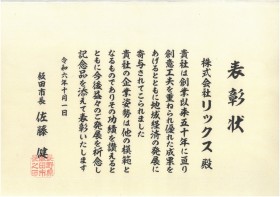 表彰状
株式会社リックス 殿
貴社は創業以来五十年に亘り
創意工夫を重ねられ優れた成果を
あげるとともに地域経済の発展に
寄与されてこられました
貴社の企業姿勢は他の模範と
なるものでありその功績を讃えると
ともに今後益々のご発展を祈念し
記念品を添えて表彰いたします
令和六年十月一日
飯田市長 佐藤 健